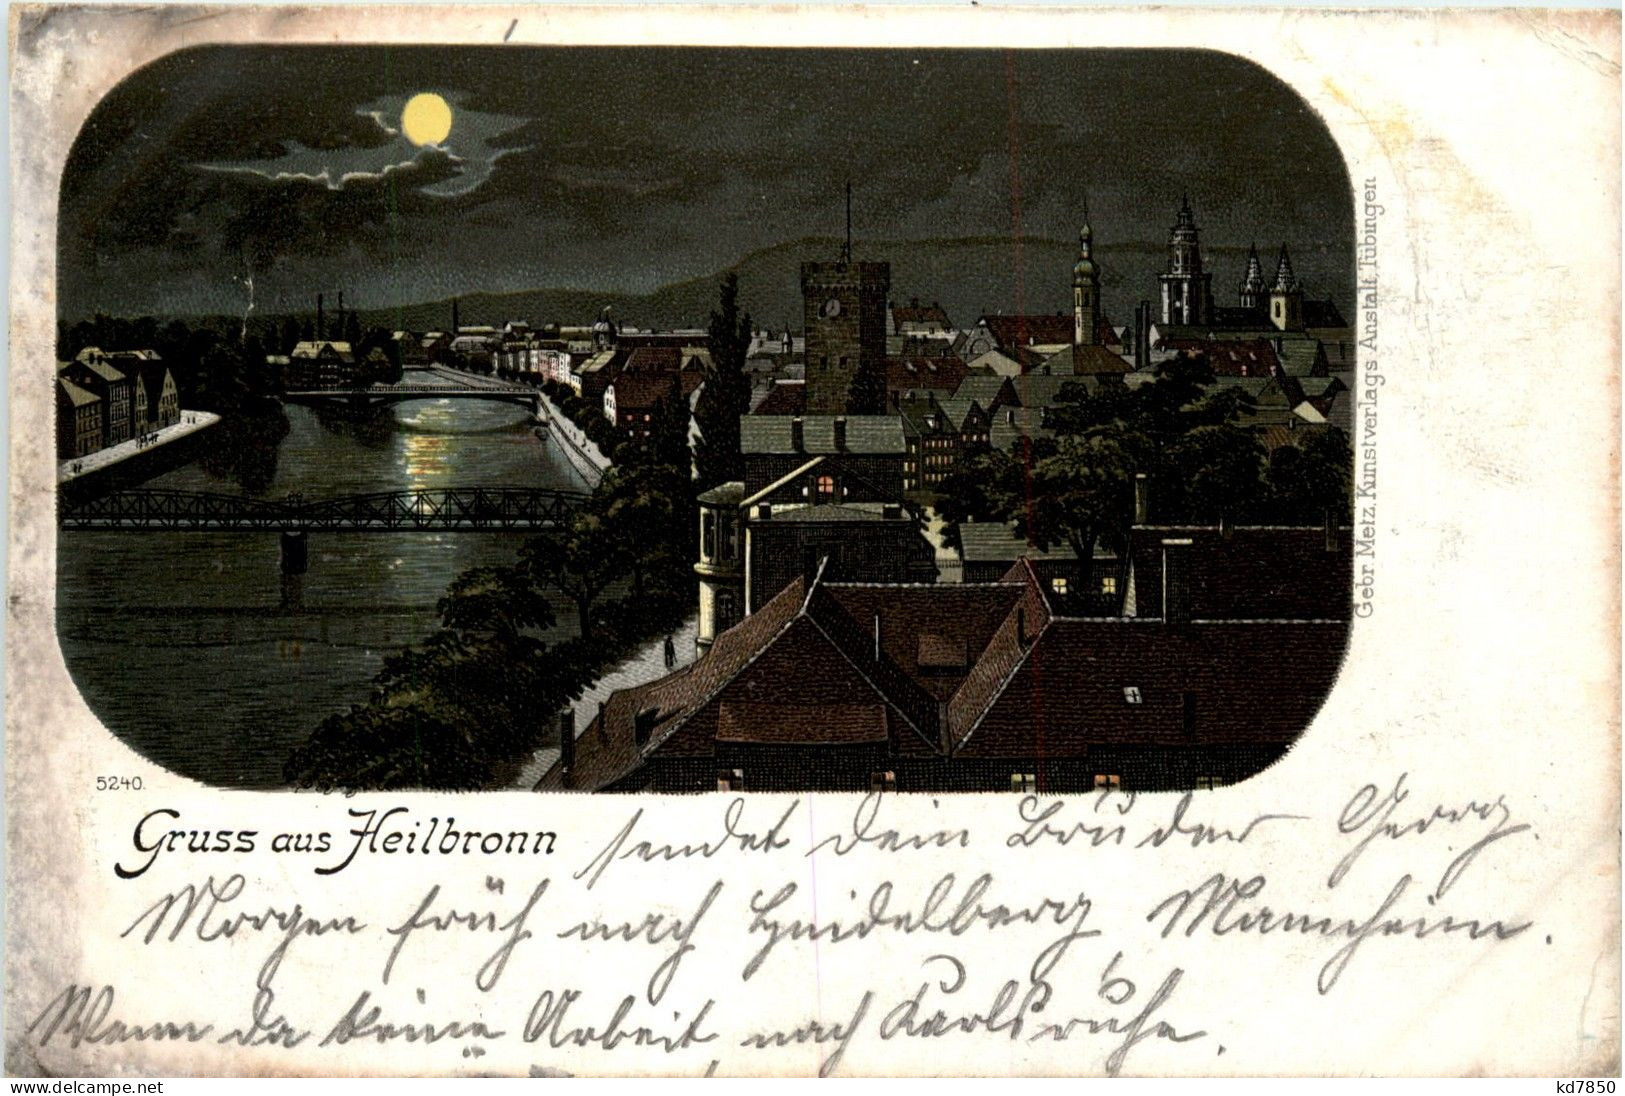 Gebr Metz, Kunstverlags Anstalt, Tübingen
5240.
Gruss aus Heilbronn sendet dein Bruder Georg.
Morgen früh nach Heidelberg Mannheim.
Wenn da keine Arbeit, nach Karlsruhe.
delcampe.net
kd7850